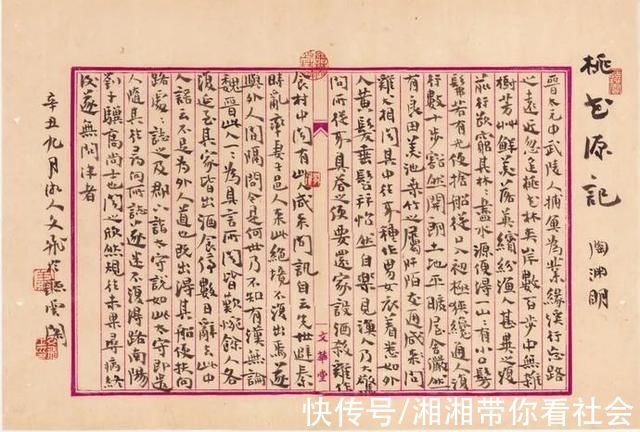 桃花源記 陶淵明
晉太元中武陵人捕魚為業緣溪行忘路
之遠近忽逢桃花林夾岸數百步中無雜
樹芳艸鮮美落英繽紛漁人甚異之復
前行欲窮其林林盡水源便得一山山有小口髣
髴若有光便捨船從口入初極狹纔通人復
行數十步豁然開朗土地平曠屋舍儼然
有良田美池桑竹之屬阡陌交通
雞犬相聞其中往來種作男女衣着悉如外
人黃髮垂髫并怡然自樂見漁人乃大驚
問所從來具答之便要還家設酒殺雞作
食村中聞有此人咸來問訊自云先世避秦
時亂率妻子邑人來此絕境不復出焉遂
與外人間隔問今是何世乃不知有漢無論
魏晉此人一一為具言所聞皆歎惋餘人各
復延至其家皆出酒食停數日辭去此中
人語云不足為外人道也既出得其船便扶向
路處處誌之及郡下詣太守說如此太守即遣
人隨其往尋向所誌遂迷不復得路南陽
劉子驥高尚士也聞之欣然規往未果尋病終
後遂無問津者
辛丑九月
文華堂
快传号/湘湘带你看社会